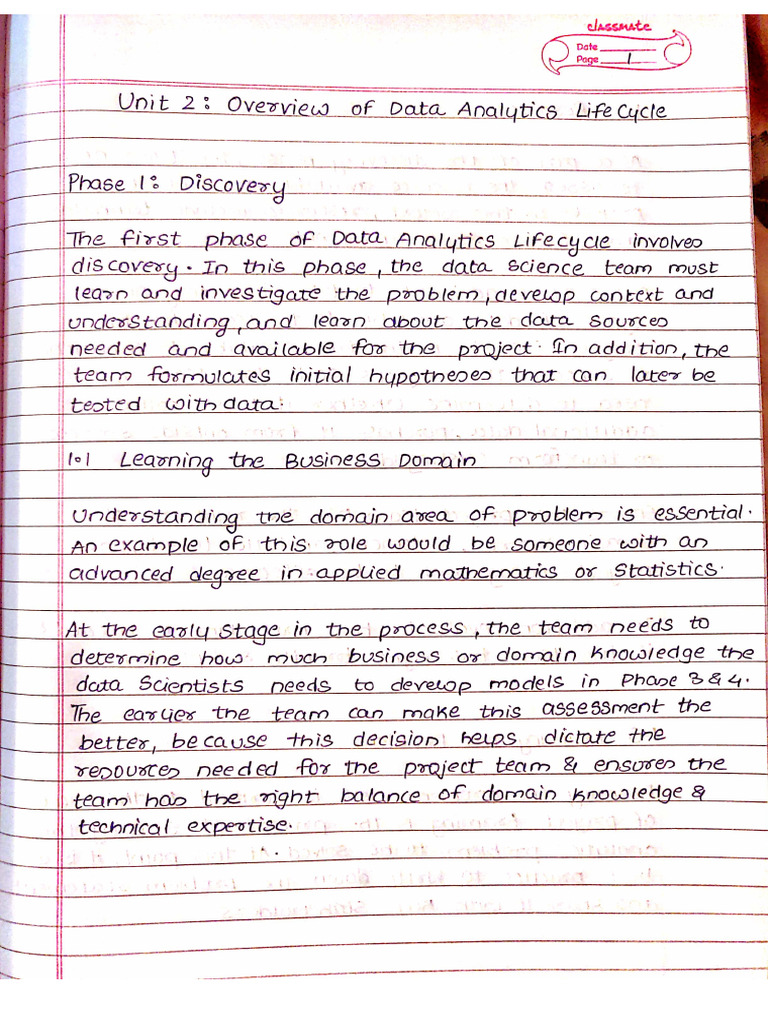 classmate
Date
Page 1
Unit 2: Overview of Data Analytics Life Cycle
Phase 1: Discovery
The first phase of Data Analytics Lifecycle involves
discovery. In this phase, the data science team must
learn and investigate the problem, develop context and
understanding, and learn about the data sources
needed and available for the project. In addition, the
team formulates initial hypotheses that can later be
tested with data.
1.1 Learning the Business Domain
Understanding the domain area of problem is essential.
An example of this role would be someone with an
advanced degree in applied mathematics or statistics.
At the early stage in the process, the team needs to
determine how much business or domain knowledge the
data scientists needs to develop models in Phase 3 & 4.
The earlier the team can make this assessment the
better, because this decision helps dictate the
resources needed for the project team & ensures the
team has the right balance of domain knowledge &
technical expertise.